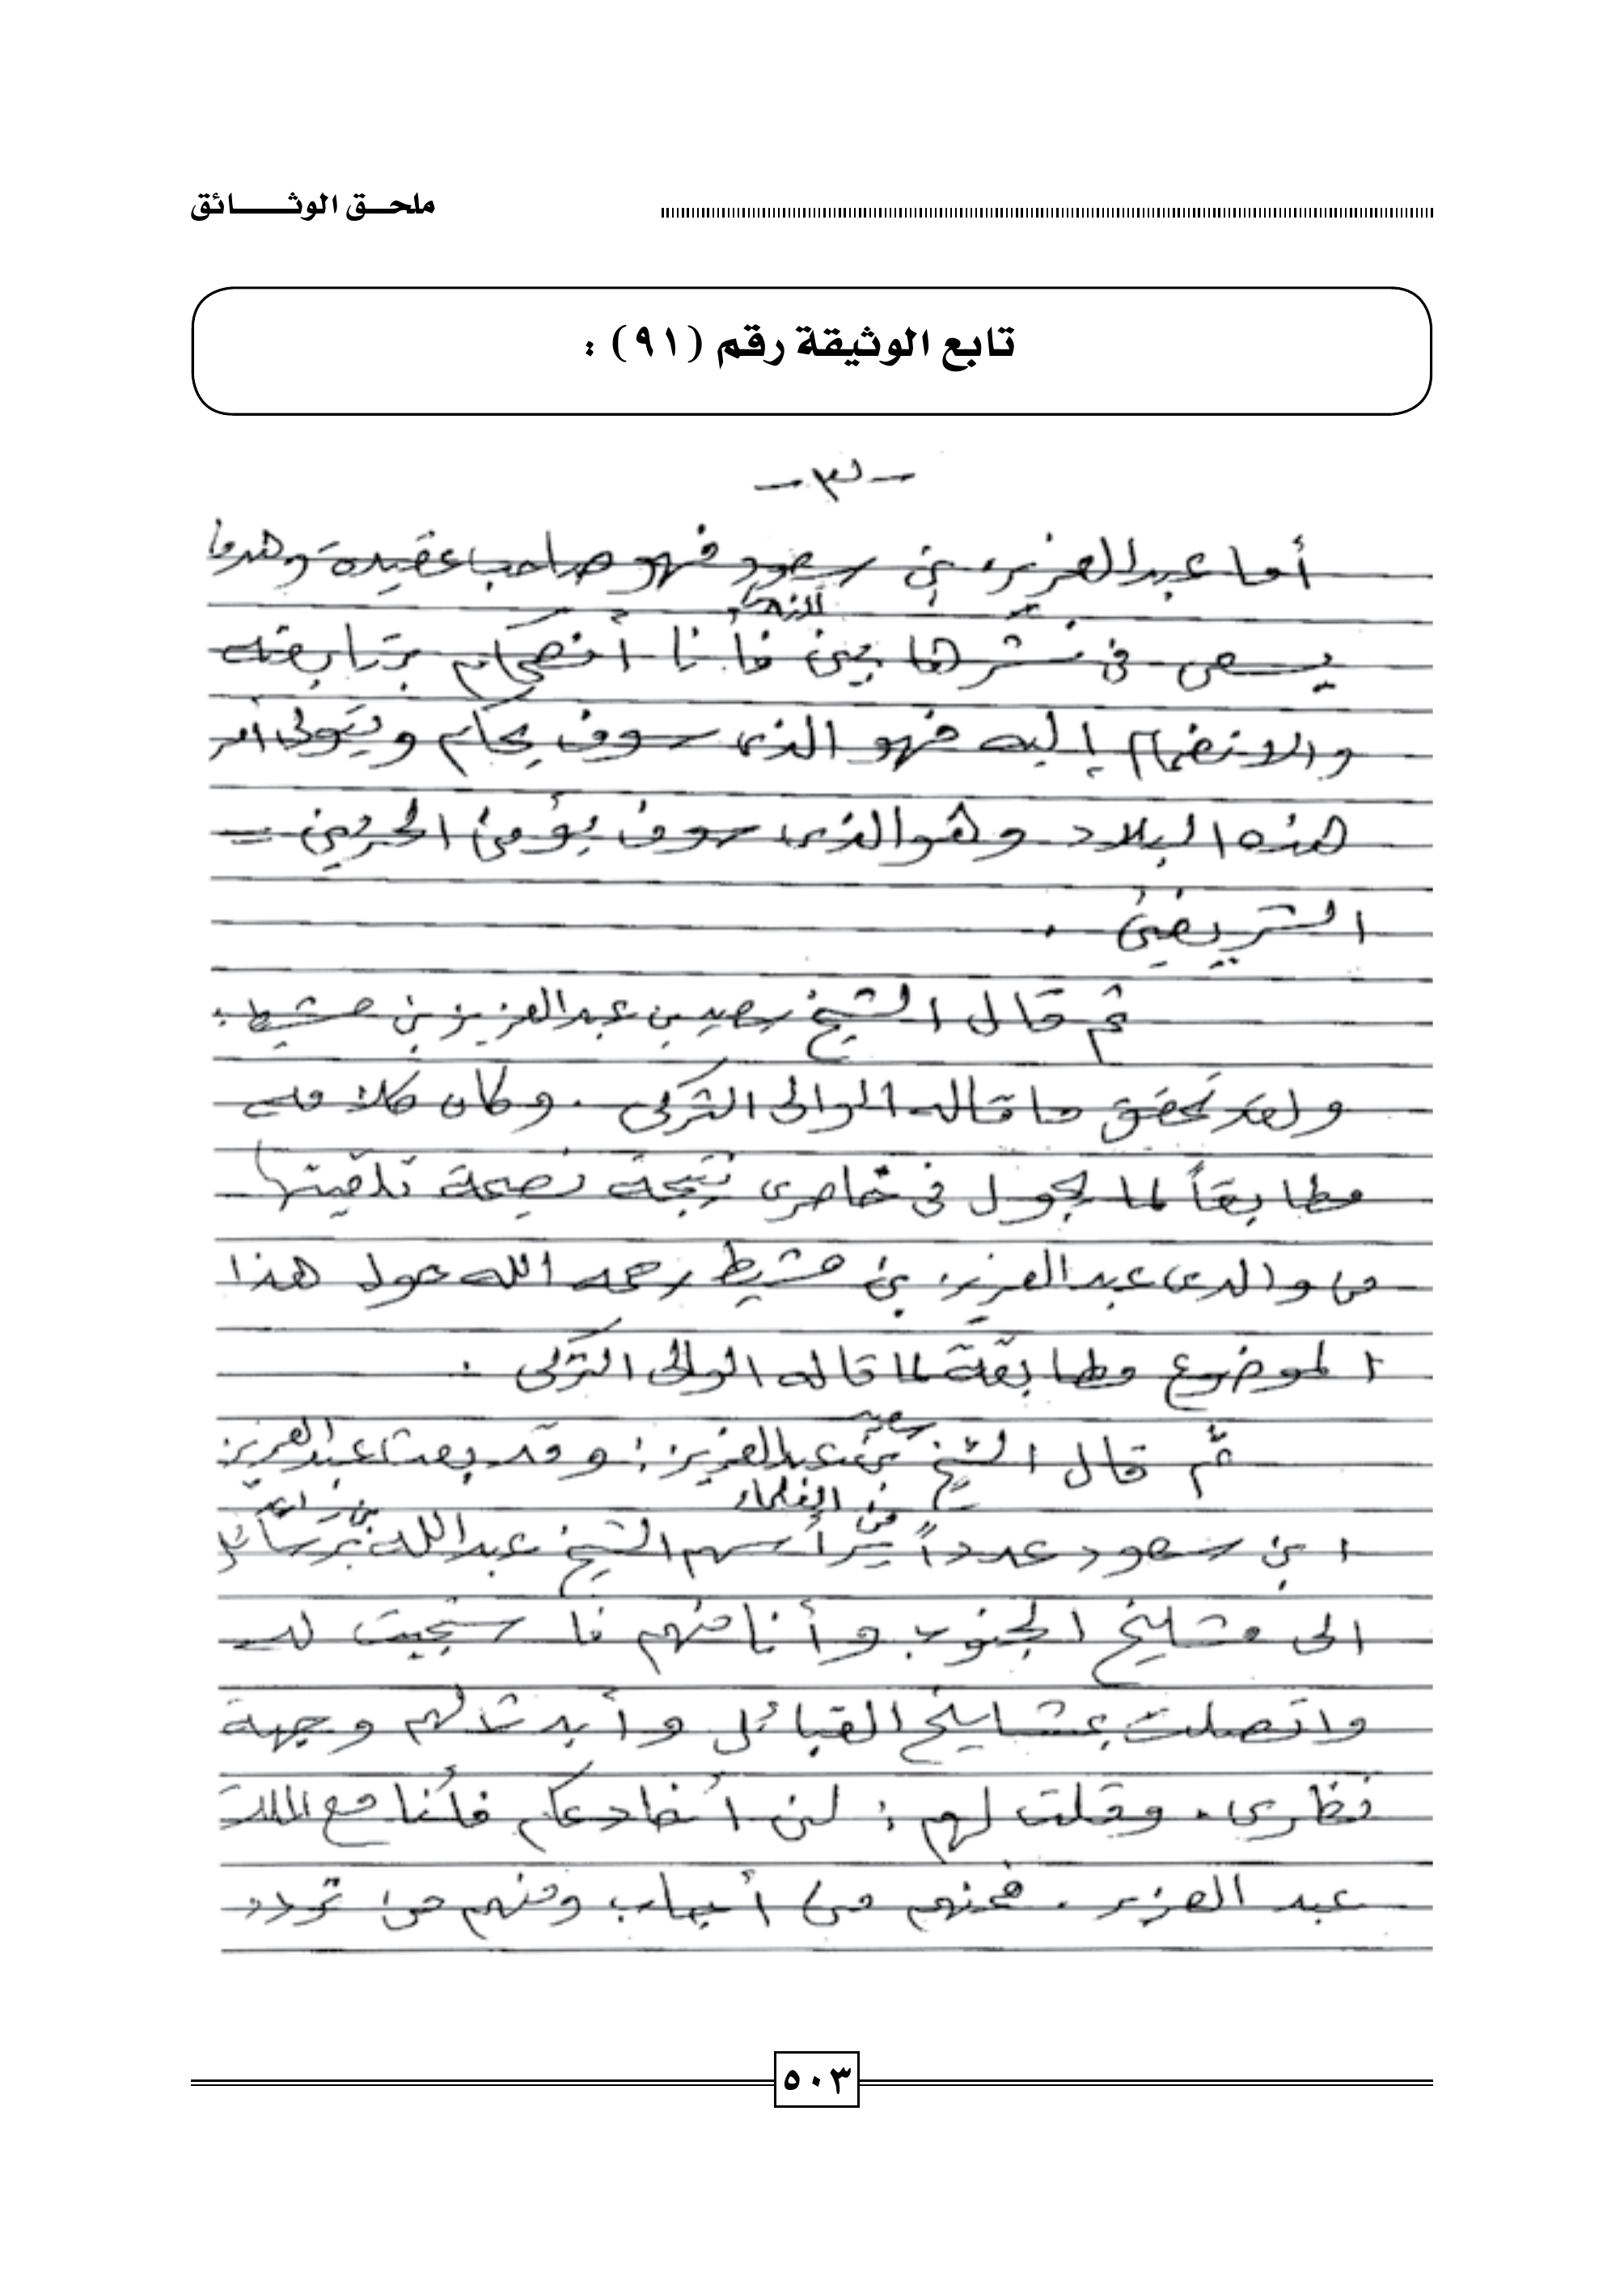 ملحق الوثائق
تابع الوثيقة رقم (٩١) :
-٣-
أما عبدالعزيز بن سعود فهو صاحب عقيدة وهدف
يسعى في نشرها بين فأنا أنصحكم بمتابعته
والانضمام إليه فهو الذى سوف يحكم ويتولى أمر
هذه البلاد وهو الذى سوف يؤمن الحرمين
الشريفين .
ثم قال الشيخ سعيد بن عبدالعزيز بن مشيط :
ولقد تحقق ما قاله الوالى التركى . وكان كلامه
مطابقاً لما يجول في خاطرى نتيجة نصيحة تلقيتها
من والدى عبدالعزيز بن مشيط رحمه الله حول هذا
الموضوع مطابقة لما قاله الوالى التركى .
ثم قال الشيخ سعيد بن عبدالعزيز : وقد بعث عبدالعزيز
ابن سعود عدداً من العلماء يرأسهم الشيخ عبدالله بن راشد برسائل
الى مشايخ الجنوب وأنا منهم فاستجبت له
واتصلت بمشايخ القبائل وأبديت لهم وجهة
نظرى . وقلت لهم : لن أخادعكم فأنا مع الملك
عبد العزيز . فمنهم من أجاب ومنهم من تردد
٥٠٣